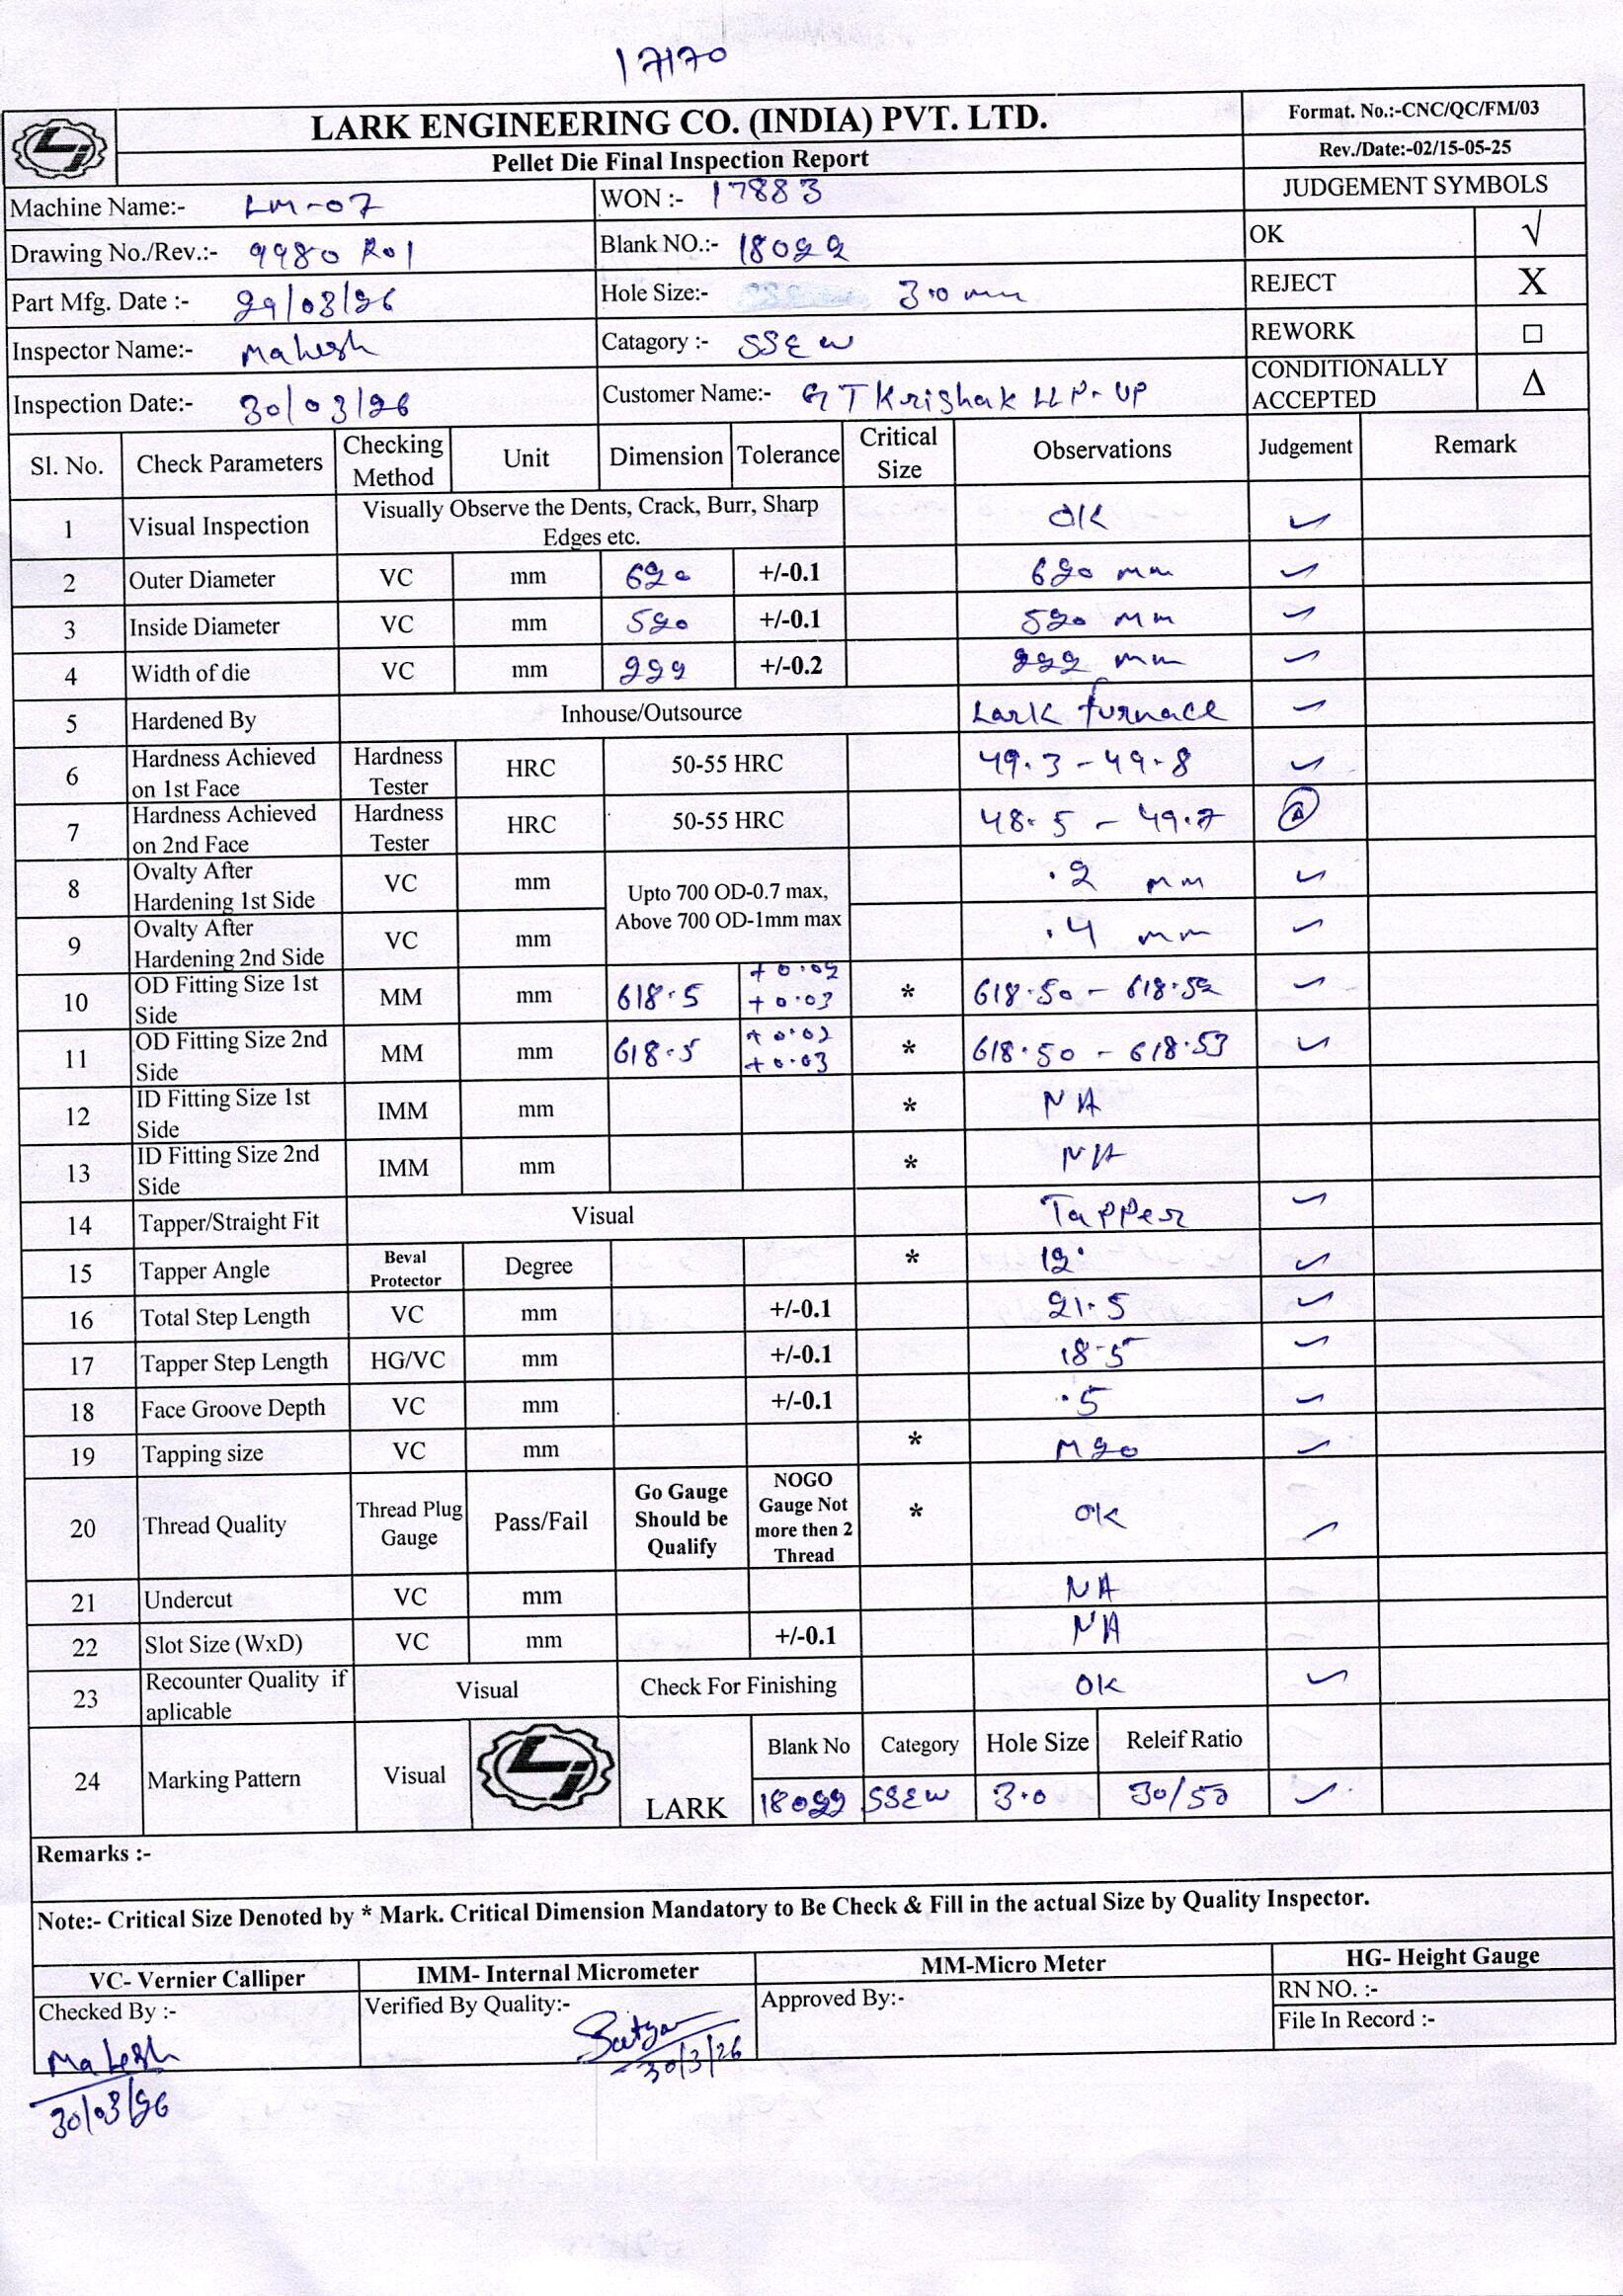 17170
LARK ENGINEERING CO. (INDIA) PVT. LTD.
Pellet Die Final Inspection Report
Format. No.:-CNC/QC/FM/03
Rev./Date:-02/15-05-25
Machine Name:- LM-07
WON :- 17883
JUDGEMENT SYMBOLS
Drawing No./Rev.:- 9980 R01
Blank NO.:- 18022
OK √
Part Mfg. Date :- 29/03/26
Hole Size:- 3.0 mm
REJECT X
Inspector Name:- Mahesh
Catagory :- SSEW
REWORK □
Inspection Date:- 30/03/26
Customer Name:- GT Krishak LLP- UP
CONDITIONALLY ACCEPTED Δ
Sl. No. Check Parameters Checking Method Unit Dimension Tolerance Critical Size Observations Judgement Remark
1 Visual Inspection Visually Observe the Dents, Crack, Burr, Sharp Edges etc. OK ✓
2 Outer Diameter VC mm 620 +/-0.1 620 mm ✓
3 Inside Diameter VC mm 520 +/-0.1 520 mm ✓
4 Width of die VC mm 222 +/-0.2 222 mm ✓
5 Hardened By Inhouse/Outsource Lark furnace ✓
6 Hardness Achieved on 1st Face Hardness Tester HRC 50-55 HRC 49.3 - 49.8 ✓
7 Hardness Achieved on 2nd Face Hardness Tester HRC 50-55 HRC 48.5 - 49.7
8 Ovalty After Hardening 1st Side VC mm Upto 700 OD-0.7 max, Above 700 OD-1mm max .2 mm ✓
9 Ovalty After Hardening 2nd Side VC mm .4 mm ✓
10 OD Fitting Size 1st Side MM mm 618.5 +0.02 +0.03 * 618.50 - 618.52 ✓
11 OD Fitting Size 2nd Side MM mm 618.5 +0.02 +0.03 * 618.50 - 618.53 ✓
12 ID Fitting Size 1st Side IMM mm * NA
13 ID Fitting Size 2nd Side IMM mm * NA
14 Tapper/Straight Fit Visual Tapper ✓
15 Tapper Angle Beval Protector Degree * 12° ✓
16 Total Step Length VC mm +/-0.1 21.5 ✓
17 Tapper Step Length HG/VC mm +/-0.1 18.5 ✓
18 Face Groove Depth VC mm +/-0.1 .5 ✓
19 Tapping size VC mm * M20 ✓
20 Thread Quality Thread Plug Gauge Pass/Fail Go Gauge Should be Qualify NOGO Gauge Not more then 2 Thread * OK ✓
21 Undercut VC mm NA
22 Slot Size (WxD) VC mm +/-0.1 NA
23 Recounter Quality if aplicable Visual Check For Finishing OK ✓
24 Marking Pattern Visual LARK
Blank No Category Hole Size Releif Ratio
18022 SSEW 3.0 30/50 ✓
Remarks :-
Note:- Critical Size Denoted by * Mark. Critical Dimension Mandatory to Be Check & Fill in the actual Size by Quality Inspector.
VC- Vernier Calliper IMM- Internal Micrometer MM-Micro Meter HG- Height Gauge
Checked By :- Verified By Quality:- Approved By:- RN NO. :-
File In Record :-
Mahesh
30/03/26
Satyam
30/3/26